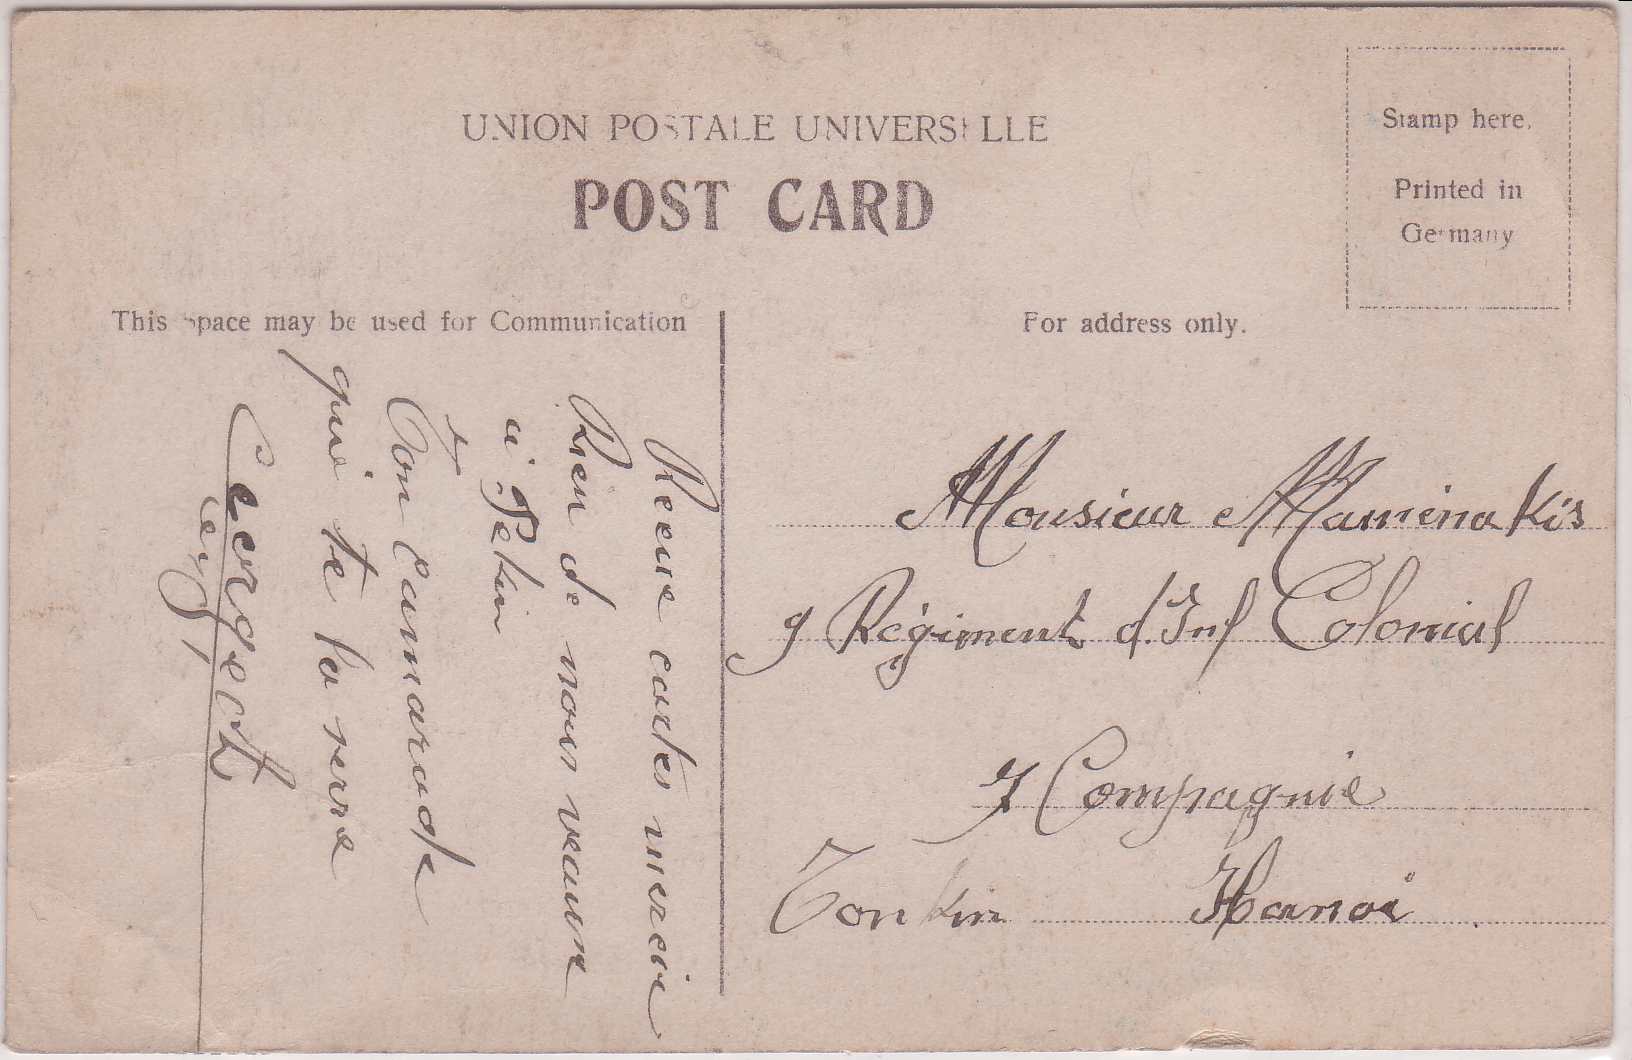 UNION POSTALE UNIVERSELLE
POST CARD
Stamp here.
Printed in
Germany
This space may be used for Communication
For address only.
Recue cartes mercie
Rien de nouv veaux
a Pekin
Ton Camarade
qui te la serre
Monsieur Maminakis
9 Régiment d'Inf Colonial
7 Compagnie
Tonkin Hanoi